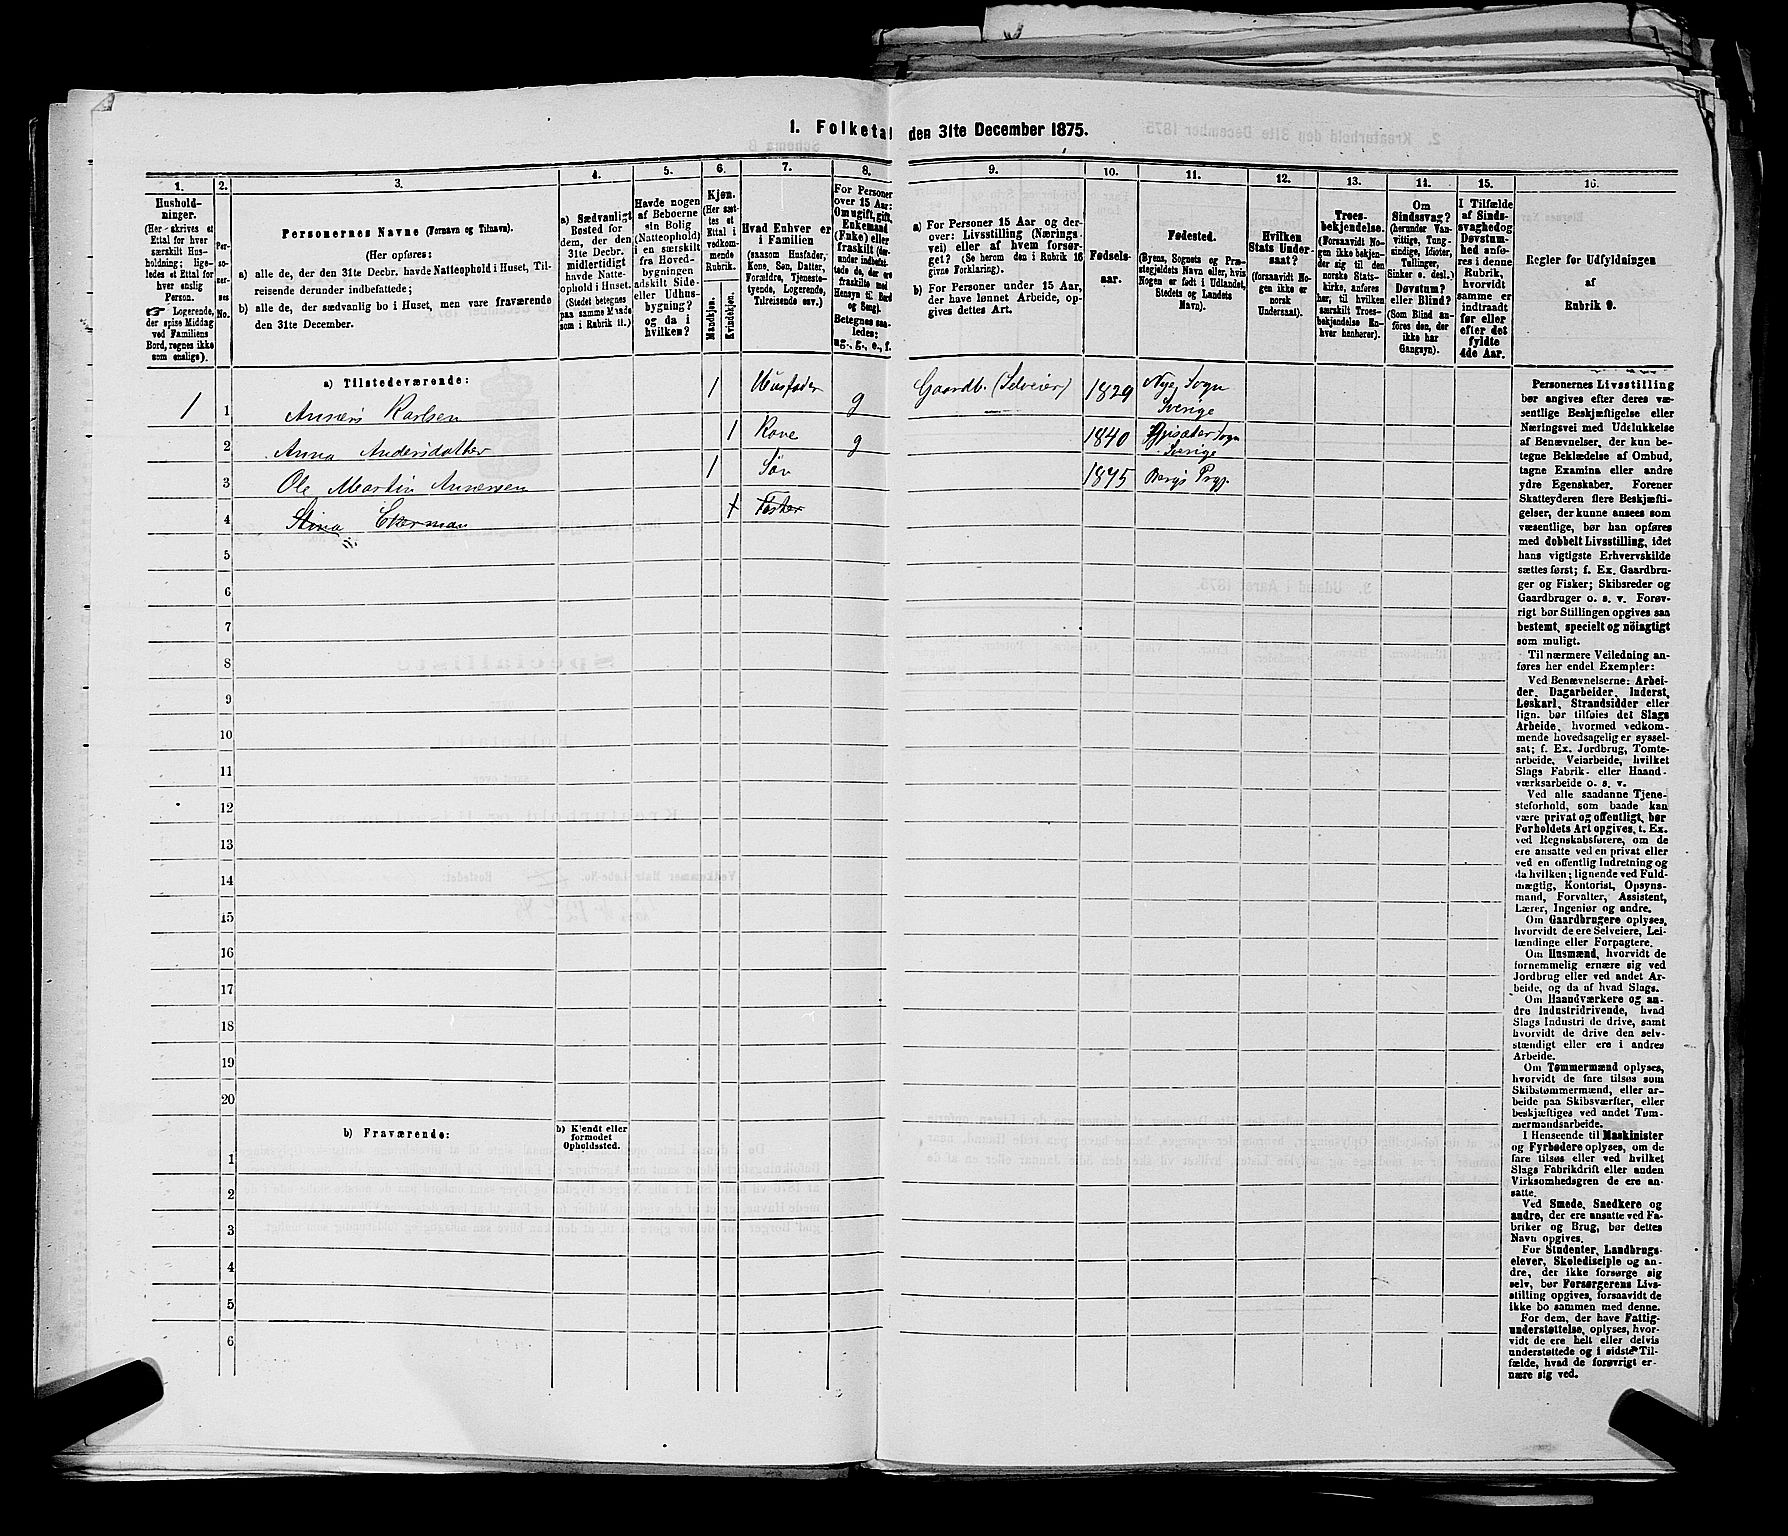 1. Folketal den 31te December 1875.
1.
2.
3.
4.
5.
6.
7.
8.
9.
10.
11.
12.
13.
14.
15.
16.
Hushold-
ninger.
(Her skrives et
Ettal for hver
særskilt Hus-
holdning; lige-
ledes et Ettal for
hver enslig
Person.
☞ Logerende,
der spise Middag
ved Familiens
Bord, regnes ikke
som enslige).
Per-
so-
ner-
nes
No.
Personernes Navne (Fornavn og Tilnavn).
(Her opføres:
a) alle de, der den 31te Decbr. havde Natteophold i Huset, Til-
reisende derunder indbefattede;
b) alle de, der sædvanlig bo i Huset, men vare fraværende
den 31te December.
a) Sædvanligt
Bosted for
dem, der den
31te Decbr.
midlertidigt
havde Natte-
ophold i Huset.
(Stedet betegnes
paa samme Maade
som i Rubrik 11.)
Havde nogen
af Beboerne
sin Bolig
(Natteophold)
i en særskilt
fra Hoved-
bygningen
adskilt Side-
eller Udhus-
bygning?
og da i
hvilken?
Kjøn.
(Her sæt-
tes et
Ettal i
vedkom-
mende
Rubrik.
Mandkjøn.
Kvindekjøn.
Hvad Enhver er
i Familien
(saasom Husfader,
Kone, Søn, Datter,
Forældre, Tjeneste-
tyende, Logerende,
Tilreisende osv.)
For Personer
over 15 Aar:
Om ugift, gift,
Enkemand
(Enke) eller
fraskilt (der-
under indbefat-
tede de, der ere
fraskilte med
Hensyn til Bord
og Seng).
Betegnes saa-
ledes:
ug., g., e., f.
a) For Personer 15 Aar og der-
over: Livsstilling (Nærings-
vei) eller af hvem forsør-
get? (Se herom den i Rubrik 16
givne Forklaring).
b) For Personer under 15 Aar,
der have lønnet Arbeide, op-
gives dettes Art.
Fødsels-
aar.
Fødested.
(Byens, Sognets og Præ-
stegjeldets Navn eller, hvis
Nogen er født i Udlandet,
Stedets og Landets
Navn).
Hvilken
Stats Under-
saat?
(forsaavidt No-
gen ikke er
norsk
Undersaat).
Troes-
bekjendelse.
(Forsaavidt No-
gen ikke bekjen-
der sig til den
norske Stats-
kirke, anføres
her, til hvilken
særskilt Troes-
bekjendelse En-
hver henhører).
Om
Sindssvag?
(herunder Van-
vittige, Tung-
sindige, Idioter,
Tullinger,
Sinker o. desl.)
Døvstum?
eller Blind?
(Som Blind an-
føres den, der
ikke har
Gangsyn).
I Tilfælde
af Sinds-
svaghed og
Døvstum-
hed anfø-
res i denne
Rubrik,
hvorvidt
samme er
indtraadt
før eller
efter det
fyldte
4de Aar.
Regler for Udfyldningen
af
Rubrik 9.
a) Tilstedeværende:
1 1 Annæs Karlsen 1 Husfader g Gaardb. (Selveier) 1829 Sogn
Sverige
2 Anna Andersdatter 1 Kone g 1840 Sogn
Sverige
3 Ole Martin Annæsen 1 Søn 1875 Bergs Prgj.
4 Stina
5
6
7
8
9
10
11
12
13
14
15
16
17
18
19
20
b) Fraværende:
b) Kjendt eller
formodet
Opholdssted.
1
2
3
4
5
6
Personernes Livsstilling
bør angives efter deres væ-
sentlige Beskjæftigelse eller
Næringsvei med Udelukkelse
af Benævnelser, der kun be-
tegne Beklædelse af Ombud,
tagne Examina eller andre
ydre Egenskaber. Forener
Skatteyderen flere Beskjæfti-
gelser, der kunne ansees som
væsentlige, bør han opføres
med dobbelt Livsstilling, idet
hans vigtigste Erhvervskilde
sættes først; f. Ex. Gaardbru-
ger og Fisker; Skibsreder og
Gaardbruger o. s. v. Forøv-
rigt bør Stillingen opgives saa
bestemt, specielt og nöiagtigt
som muligt.
Til nærmere Veiledning an-
føres her endel Exempler:
Ved Benævnelserne: Arbei-
der, Dagarbeider, Inderst,
Løskarl, Strandsidder eller
lign. bør tilføies det Slags
Arbeide, hvormed vedkom-
mende hovedsagelig er syssel-
sat; f. Ex. Jordbrug, Tomte-
arbeide, Veiarbeide, hvilket
Slags Fabrik- eller Haand-
værksarbeide o. s. v.
Ved alle saadanne Tjene-
steforhold, som baade kan
være privat og offentligt, bør
Forholdets Art opgives, t. Ex.
ved Regnskabsførere, om de
ere ansatte ved en privat eller
ved en offentlig Indretning og
da hvilken; lignende ved Fuld-
mægtig, Kontorist, Opsyns-
mand, Forvalter, Assistent,
Lærer, Ingeniør og andre.
Om Gaardbrugere oplyses,
hvorvidt de ere Selveiere, Lei-
lændinge eller Forpagtere.
Om Husmænd, hvorvidt de
fornemmelig ernære sig ved
Jordbrug eller ved andet Ar-
beide, og da af hvad Slags.
Om Haandværkere og an-
dre Industridrivende, hvad
Slags Industri de drive, samt
hvorvidt de drive den selv-
stændigt eller ere i andres
Arbeide.
Om Tømmermænd oplyses,
hvorvidt de fare tilsøs som
Skibstømmermænd, eller ar-
beide paa Skibsværfter, eller
beskjæftiges ved andet Tøm-
mermandsarbeide.
I Henseende til Maskinister
og Fyrbødere oplyses, om de
fare tilsøs eller ved hvilket
Slags Fabrikdrift eller anden
Virksomhedsgren de ere an-
satte.
Ved Smede, Snedkere og
andre, der ere ansatte ved Fa-
briker og Brug, bør dettes
Navn opgives.
For Studenter, Landbrugs-
elever, Skoledisciple og an-
dre, der ikke forsørge sig
selv, bør Forsørgerens Livs-
stilling opgives, forsaavidt de
ikke bo sammen med denne.
For dem, der have Fattig-
understøttelse, oplyses, hvor-
vidt de ere helt eller delvis
understøttede og i sidste Til-
fælde, hvad de forøvrigt er-
nære sig ved.